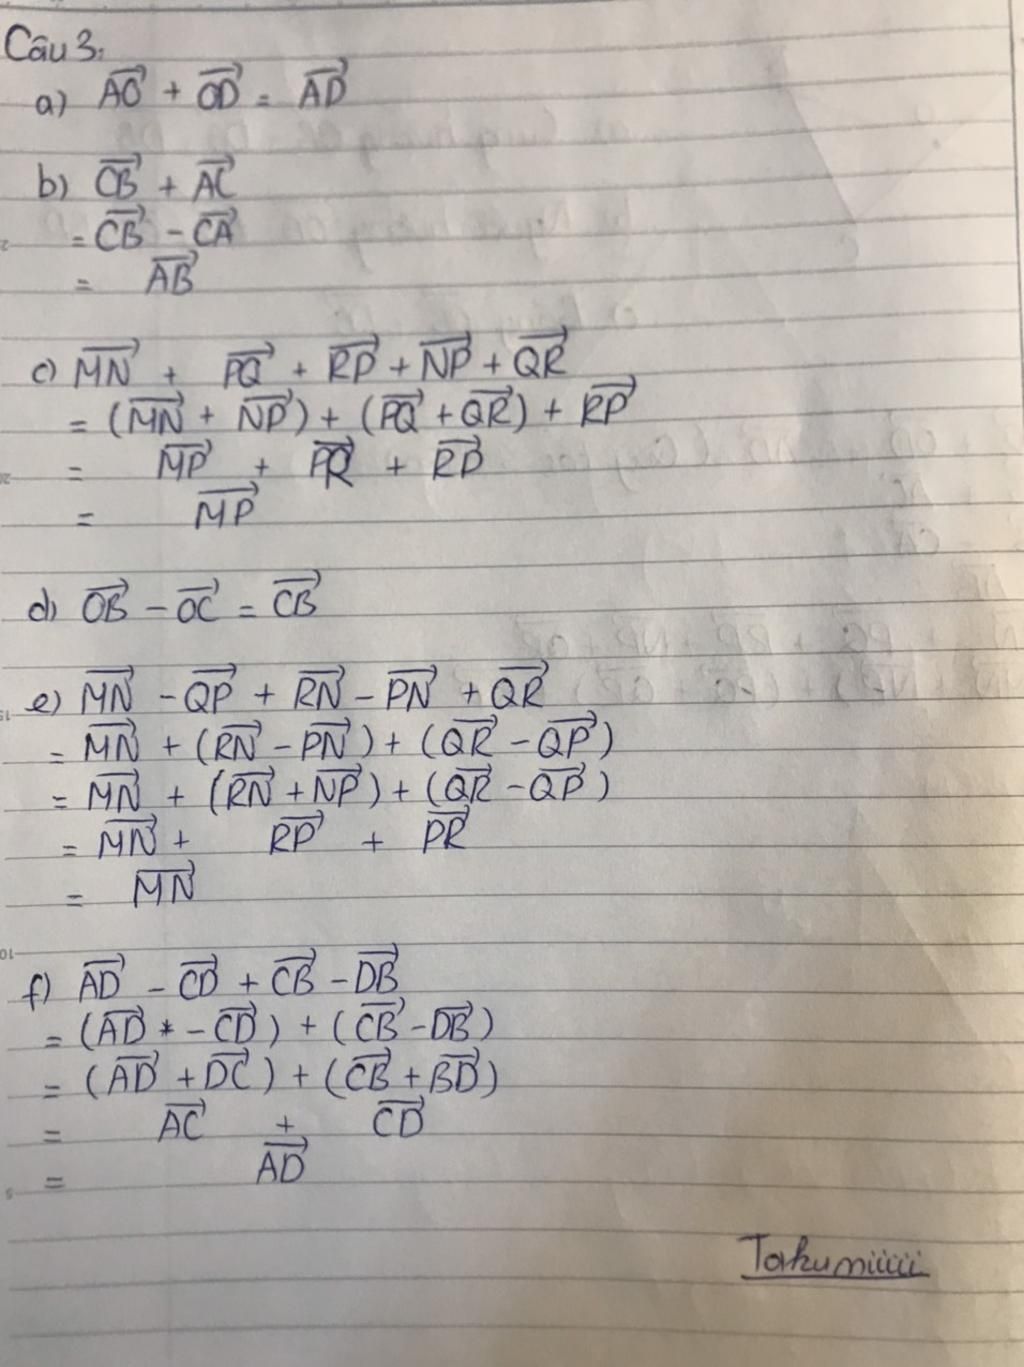 Câu 3:
a) AO⃗ + OD⃗ = AD⃗
b) CB⃗ + AC⃗
= CB⃗ - CA⃗
= AB⃗
c) MN⃗ + PQ⃗ + RP⃗ + NP⃗ + QR⃗
= (MN⃗ + NP⃗) + (PQ⃗ + QR⃗) + RP⃗
= MP⃗ + PR⃗ + RP⃗
= MP⃗
d) OB⃗ - OC⃗ = CB⃗
e) MN⃗ - QP⃗ + RN⃗ - PN⃗ + QR⃗
= MN⃗ + (RN⃗ - PN⃗) + (QR⃗ - QP⃗)
= MN⃗ + (RN⃗ + NP⃗) + (QR⃗ - QP⃗)
= MN⃗ + RP⃗ + PR⃗
= MN⃗
f) AD⃗ - CD⃗ + CB⃗ - DB⃗
= (AD⃗ * - CD⃗) + (CB⃗ - DB⃗)
= (AD⃗ + DC⃗) + (CB⃗ + BD⃗)
= AC⃗ + CD⃗
= AD⃗
Takumiiiii